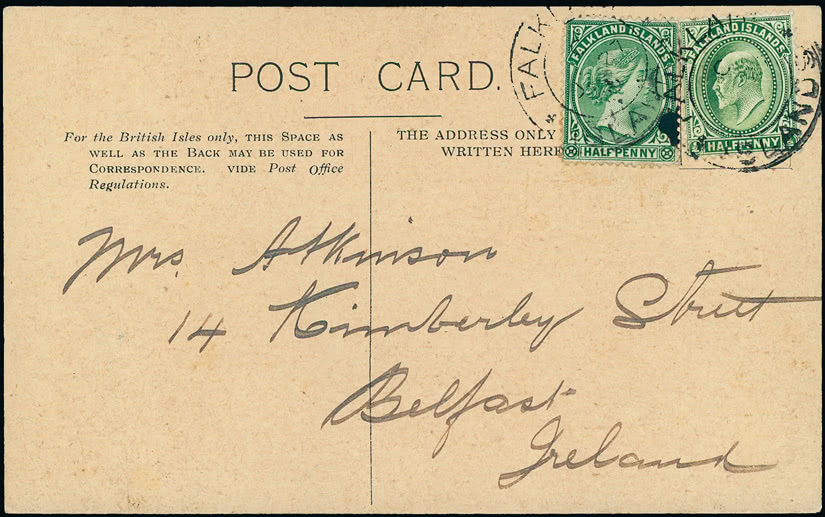 POST CARD.
For the British Isles only, THIS SPACE AS
WELL AS THE BACK MAY BE USED FOR
CORRESPONDENCE. VIDE Post Office
Regulations.
THE ADDRESS ONLY
WRITTEN HERE
FALKLAND ISLANDS
HALFPENNY
FALKLAND ISLANDS
HALFPENNY
Mrs. Atkinson
14 Kimberley Street
Belfast
Ireland